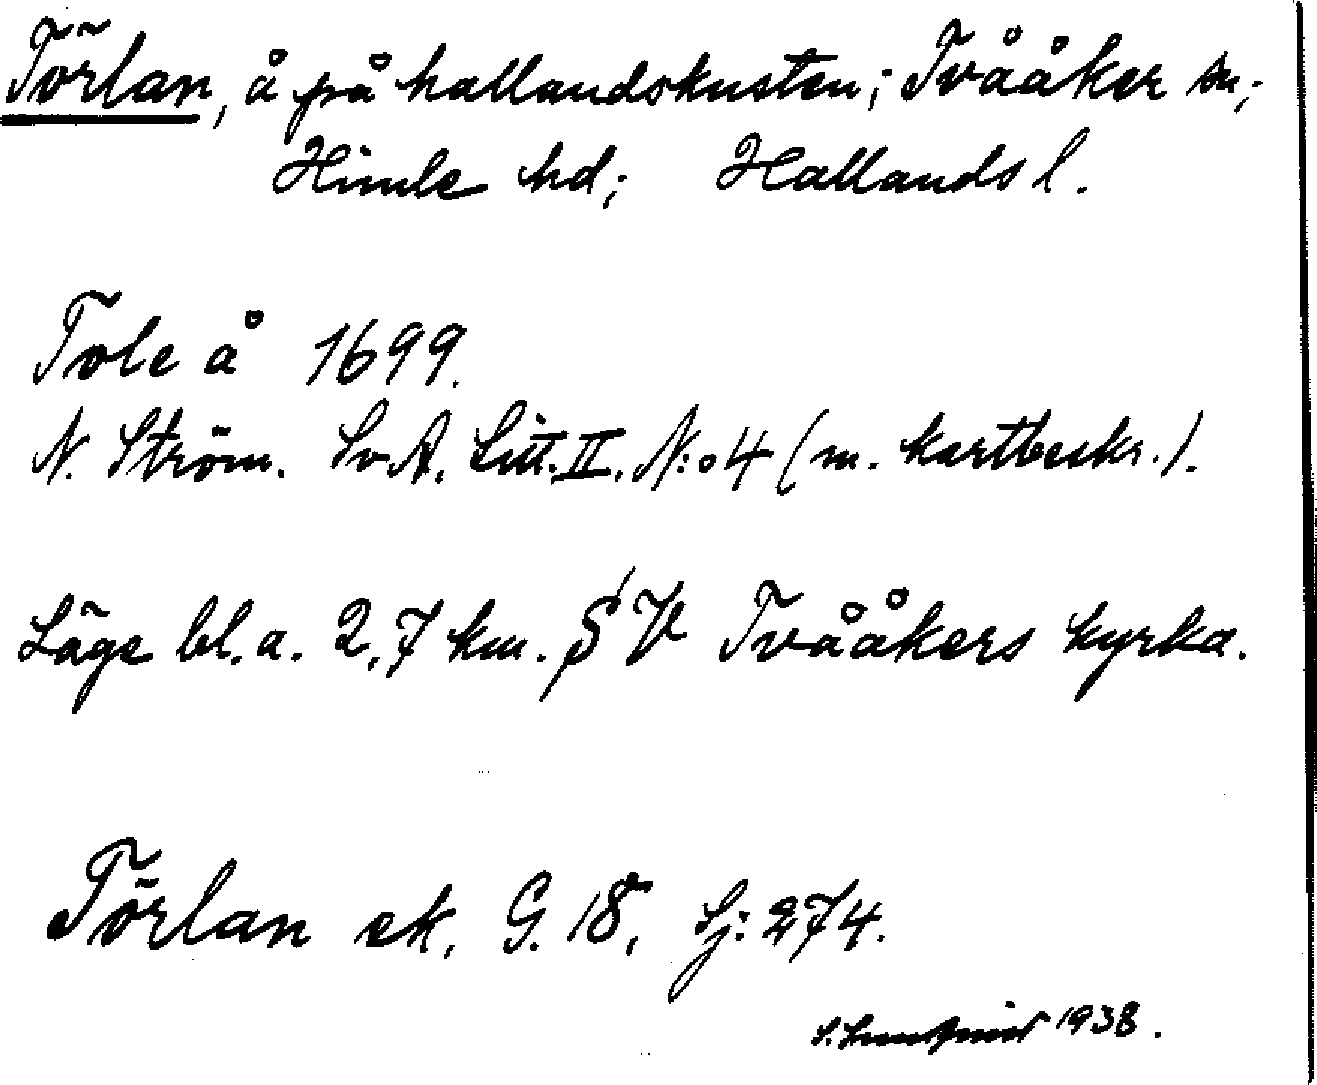 Törlan, å på hallandskusten; Tvååker sn;
Himle hd; Hallands l.
Tole å 1699.
N. Ström. SvA. Litt. II. N:o 4 (m. kartbeskr.).
Läge bl.a. 2,7 km. S V Tvååkers kyrka.
Törlan ek. G. 18, Sj: 274.
1938.